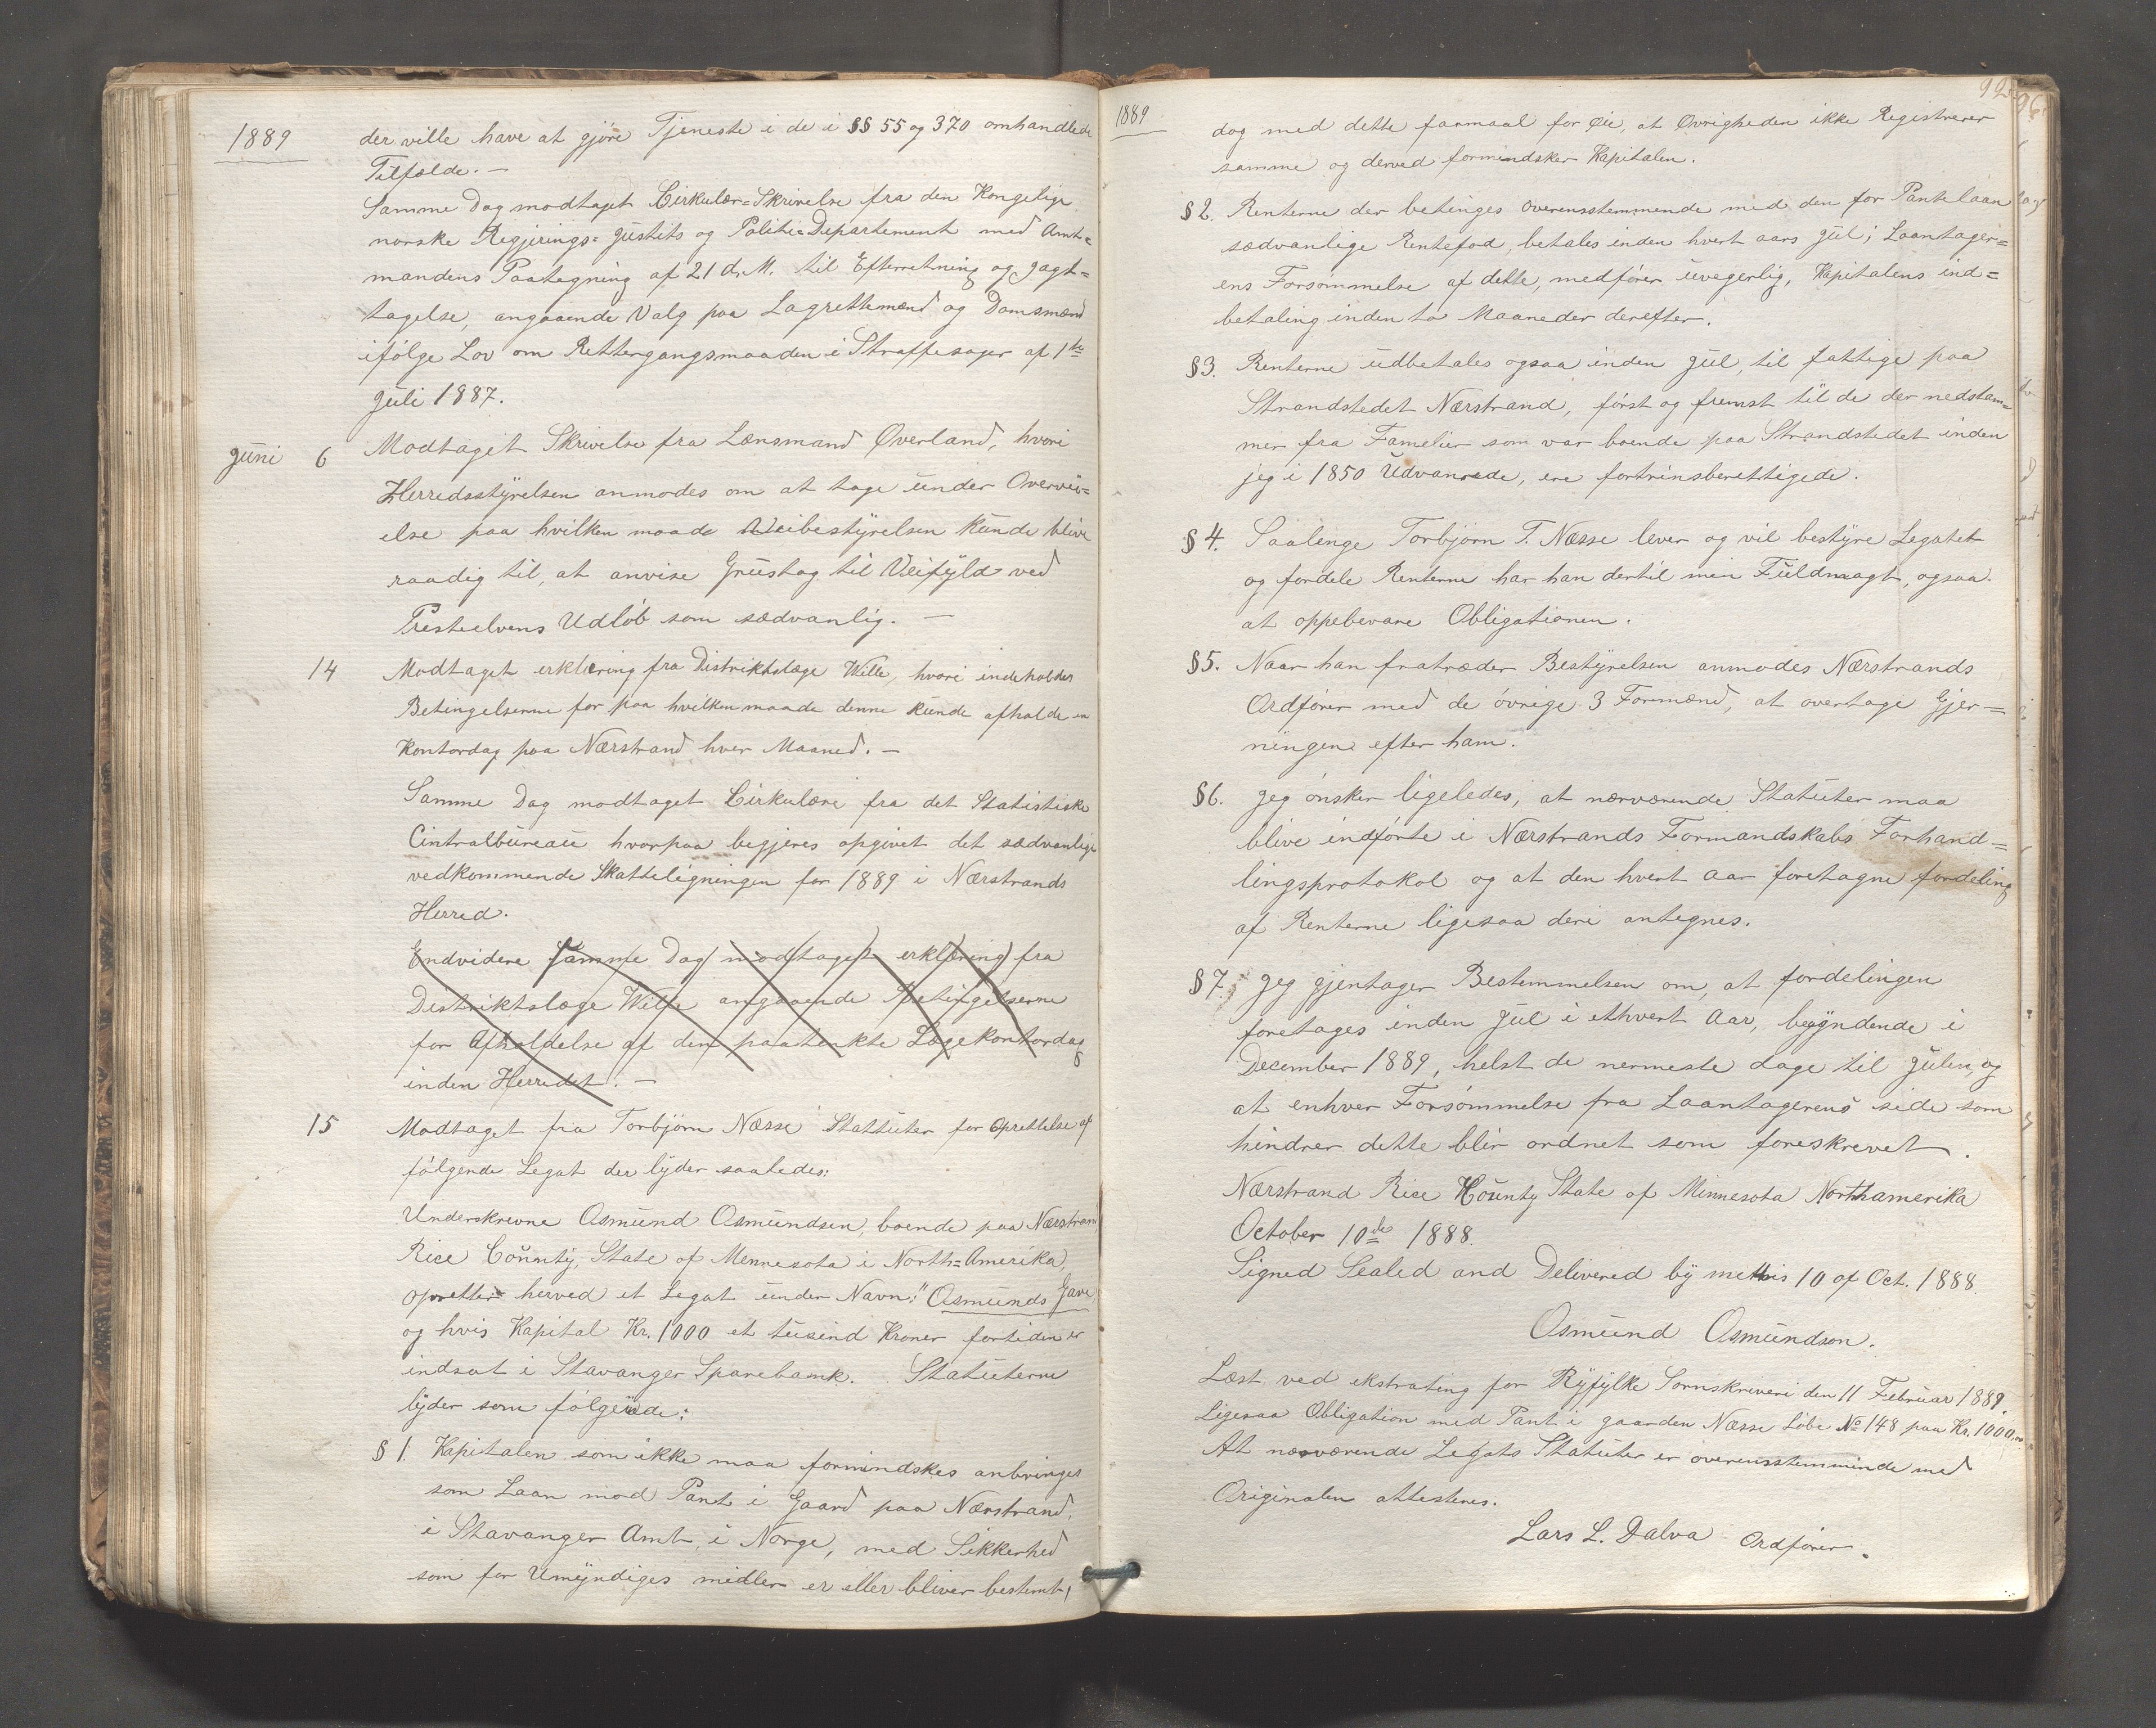 1889
der ville have at gjöre Tjeneste i de i §§ 55 og 370 omhandlede
Tilfælde. —
Samme Dag modtaget Cirkulær=Skrivelse fra den Kongelige
norske Regjerings= Justits og Politi=Departement med Amt=
mandens Paategning af 21 d. M. til Efterretning og Jagt=
tagelse, angaaende Valg paa Lagrettemænd og Domsmænd
ifölge Lov om Rettergangsmaaden i Straffesager af 1ste
Juli 1887.
Juni 6 Modtaget Skrivelse fra Lensmand Øverland, hvori
Herredsstyrelsen anmodes om at tage under Overvei=
else paa hvilken maade Veibestyrelsen kunde blive
raadig til, at anvise Grustag til Veifyld ved
Presteelvens Udlöb som sædvanlig. —
14 Modtaget erklæring fra Distriktslæge Wille, hvori indeholder
Betingelserne for paa hvilken maade denne kunde afholde en
Kontordag paa Nærstrand hver Maaned. —
Samme Dag modtaget Cirkulære fra det Statistiske
Cintralbureau hvorpaa begjeres opgivet det sædvanlige
vedkommende Skatteligningen for 1889 i Nærstrands
Herred.
Endvidere samme Dag modtaget erklæring fra
Distriktslæge Wille angaaende Betingelserne
for Afholdelse af den paatenkte Lægekontordag
inden Herredet. —
15 Modtaget fra Torbjörn Næsse Stattuter for Oprettelse af
fölgende Legat der lyder saaledes:
Underskrevne Osmund Osmundsen, boende paa Nærstrand
Rice County, State of Mennesota i North=Amerika,
opretter herved et Legat under Navn: "Osmunds Gave,
og hvis Kapital Kr. 1000 et tusind Kroner fortiden er
indsat i Stavanger Sparebank. Statuterne
lyder som fölgende:
§ 1. Kapitalen som ikke maa formindskes anbringes
som Laan mod Pant i Gaard paa Nærstrand,
i Stavanger Amt, i Norge, med Sikkerhed
som for Umyndiges midler er eller bliver bestemt,
1889
dog med dette formaal for Øie, at Øvrigheden ikke Registrerer
samme og derved formindsker Kapitalen.
§ 2. Renterne der betinges overensstemmende med den for Pantelaan
sædvanlige Rentefod, betales inden hvert aars Jul; Laantager=
ens Forsömmelse af dette, medförer uvegerlig, Kapitalens ind=
betaling inden to Maaneder derefter.
§ 3. Renterne udbetales ogsaa inden Jul, til fattige paa
Strandstedet Nærstrand, först og fremst til de der nedstam=
mer fra Famelier som var boende paa Strandstedet inden
jeg i 1850 Udvanrede, ere fortrinsberettigede.
§ 4. Saalenge Torbjörn T. Næsse lever og vil bestyre Legatet
og fordele Renterne har han dertil min Fuldmagt, ogsaa
at oppebevare Obligationen.
§ 5. Naar han fratræder Bestyrelsen anmodes Nærstrands
Ordförer med de övrige 3 Formænd, at overtage Gjer=
ningen efter ham.
§ 6. Jeg önsker ligeledes, at nærværende Statuter maa
blive indförte i Nærstrands Formandskabs Forhand=
lingsprotokol og at den hvert Aar foretagne fordeling
af Renterne ligesaa deri antegnes.
§ 7. Jeg gjentager Bestemmelsen om, at fordelingen
foretages inden Jul i ethvert Aar, begyndende i
December 1889, helst de nermeste dage til Julen, og
at enhver Forsömmelse fra Laantagerens side som
hindrer dette blir ordnet som foreskrevet.
Nærstrand Rice County State of Minnesota Northamerika
October 10de 1888.
Signed Sealed and Delivered by me this 10 of Oct. 1888.
Osmund Osmundson.
Læst ved ekstrating for Ryfylke Sornskriveri den 11 Februar 1889.
Ligesaa Obligation med Pant i gaarden Næsse Löbe No 148 paa Kr. 1000,00
At nærværende Legats Statuter er overensstemminde med
Originalen attesteres.
Lars L. Dalva Ordförer.